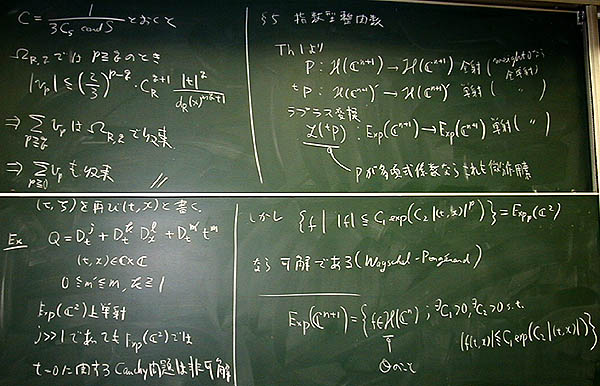 C = 1/(3C₅ and S) とおくと
Ω_{R,2} では p≧q のとき
|v_p| ≦ (2/3)^{p-q} · C_R^{q+1} |t|²
⇒ Σ_{p≧q} v_p は Ω_{R,2} で収束
⇒ Σ_{p≧0} v_p も収束 //
§5 指数型整函数
Th 1 より
P : ℋ(ℂⁿ⁺¹) → ℋ(ℂⁿ⁺¹) 全射 (weight 0 なら 全単射)
ᵗP : ℋ(ℂⁿ⁺¹)' → ℋ(ℂⁿ⁺¹)' 単射 ( 〃 )
ラプラス変換
ℒ(ᵗP) : Exp(ℂⁿ⁺¹) → Exp(ℂⁿ⁺¹) 単射 ( 〃 )
Pが多項式係数ならこれも微分作用素
(t, ζ) を再び (t, x) と書く.
Ex Q = D_t^j + D_t^k D_x^l + D_t^{m'} t^m
(t, x) ∈ ℂ×ℂ
0 ≦ m' ≦ m,
Exp(ℂ²) 上単射
j>>1 であっても Exp(ℂ²) では
t=0 に関する Cauchy 問題は非可解
しかし {f | |f| ≦ C₁ exp(C₂ |(t,x)|^p)} = Exp_p(ℂ²)
なら可解である (Wagschal-Pongérard)
Exp(ℂⁿ⁺¹) = {f∈ℋ(ℂⁿ) ; ∃C₁>0, ∃C₂>0 s.t.
|f(t,x)| ≦ C₁ exp(C₂ |(t,x)|)}
𝒪のこと